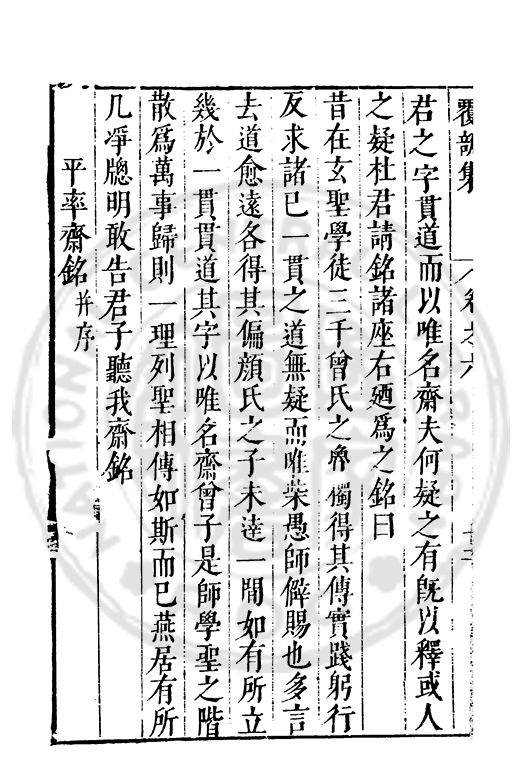 覆瓿集 卷之六
君之字貫道而以唯名齋夫何疑之有旣以釋或人
之疑杜君請銘諸座右廼爲之銘曰
昔在玄聖學徒三千曾氏之魯獨得其傳實踐躬行
反求諸己一貫之道無疑而唯柴愚師僻賜也多言
去道愈遠各得其偏顔氏之子未達一間如有所立
幾於一貫貫道其字以唯名齋曾子是師學聖之階
散爲萬事歸則一理列聖相傳如斯而已燕居有所
几凈牕明敢告君子聽我齋銘
平率齋銘并序